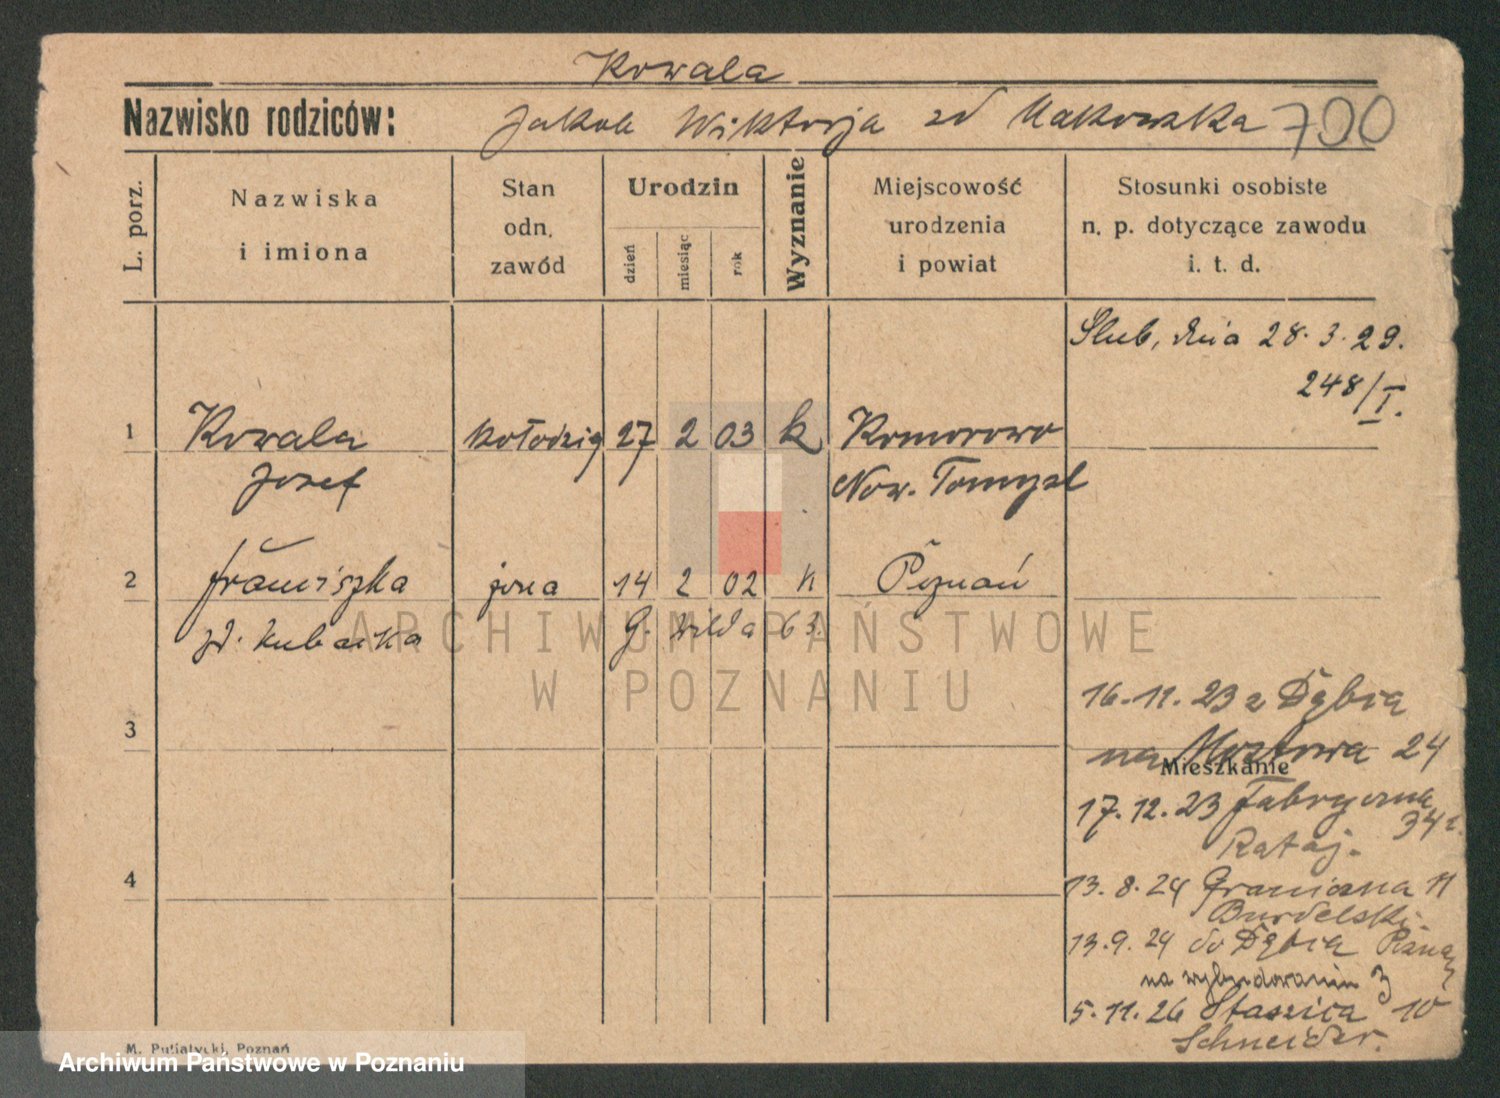 Kowala
Nazwisko rodziców: Jakob Wiktorja zd Makowska 700
L. porz.
Nazwiska
i imiona
Stan
odn.
zawód
Urodzin
dzień
miesiąc
rok
Wyznanie
Miejscowość
urodzenia
i powiat
Stosunki osobiste
n. p. dotyczące zawodu
i. t. d.
Slub, dnia 28. 3. 29.
248/I.
1 Kowala kołodziej 27 2 03 k Komorowo
Jozef Now. Tomysl
2 Franciszka zona 14 2 02 k Poznań
zd. G. Wilda 63.
ARCHIWUM PAŃSTWOWE
W POZNANIU
16. 11. 23 z Dębca
3
na Mostowa 24
Mieszkanie
17. 12. 23 Fabryczna
34
Rataj.
4
13. 8. 24 Graniczna 11
Burdelski.
13. 9. 24 do Dębca
na wybudowaniu 3
5. 11. 26 Staszica 10
Schneider.
M. Putiatycki, Poznań
Archiwum Państwowe w Poznaniu